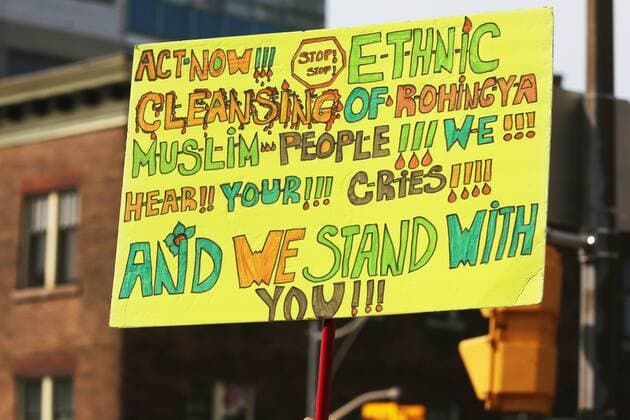 ACT NOW!!! STOP! STOP! ETHNIC
CLEANSING OF ROHINGYA
MUSLIM PEOPLE!!! WE!!!
HEAR!! YOUR!!! CRIES!!!!
AND WE STAND WITH
YOU!!!